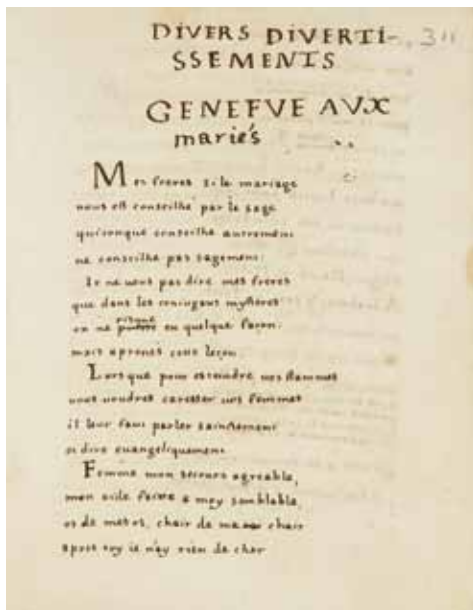 DIVERS DIVERTI-
SSEMENTS
GENEFVE AVX
mariés
Mes freres si le mariage
nous est conseilhé par le sage
quiconque conseilhe autrement
ne conseilhe pas sagement:
Je ne veux pas dire mes freres
que dans les coniugaux mysteres
on ne risque en quelque façon:
mais aprenés cette leçon
Lors que pour estaindre vos flammes
vous voudres caresser vos femmes
il leur faut parler sainctement
et dire euangeliquement
Femme mon secours agreable,
mon aide faicte a moy semblable,
os de mes os, chair de ma chair
apres toy ie n'ay rien de cher